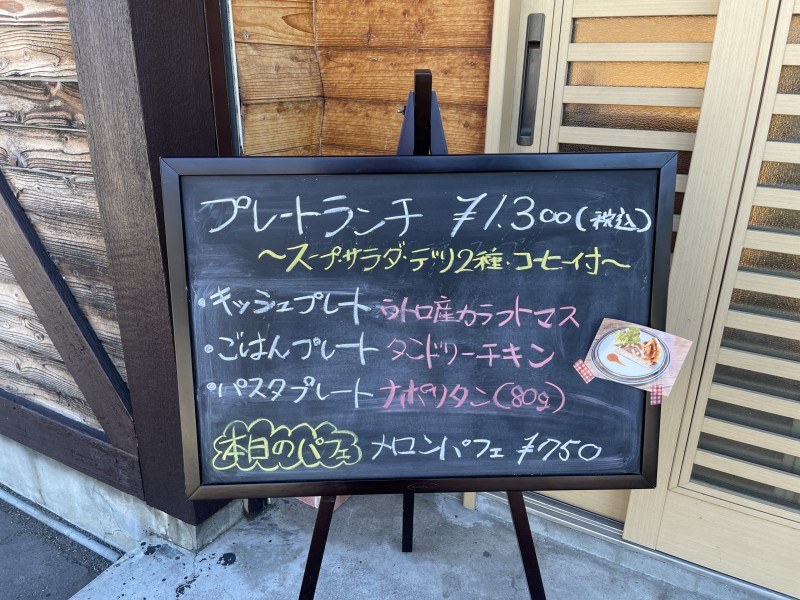 プレートランチ ¥1.300(税込)
〜スープ・サラダ・デリ2種・コーヒー付〜
・キッシュプレート ウトロ産カラフトマス
・ごはんプレート タンドリーチキン
・パスタプレート ナポリタン(80g)
本日のパフェ メロンパフェ ¥750